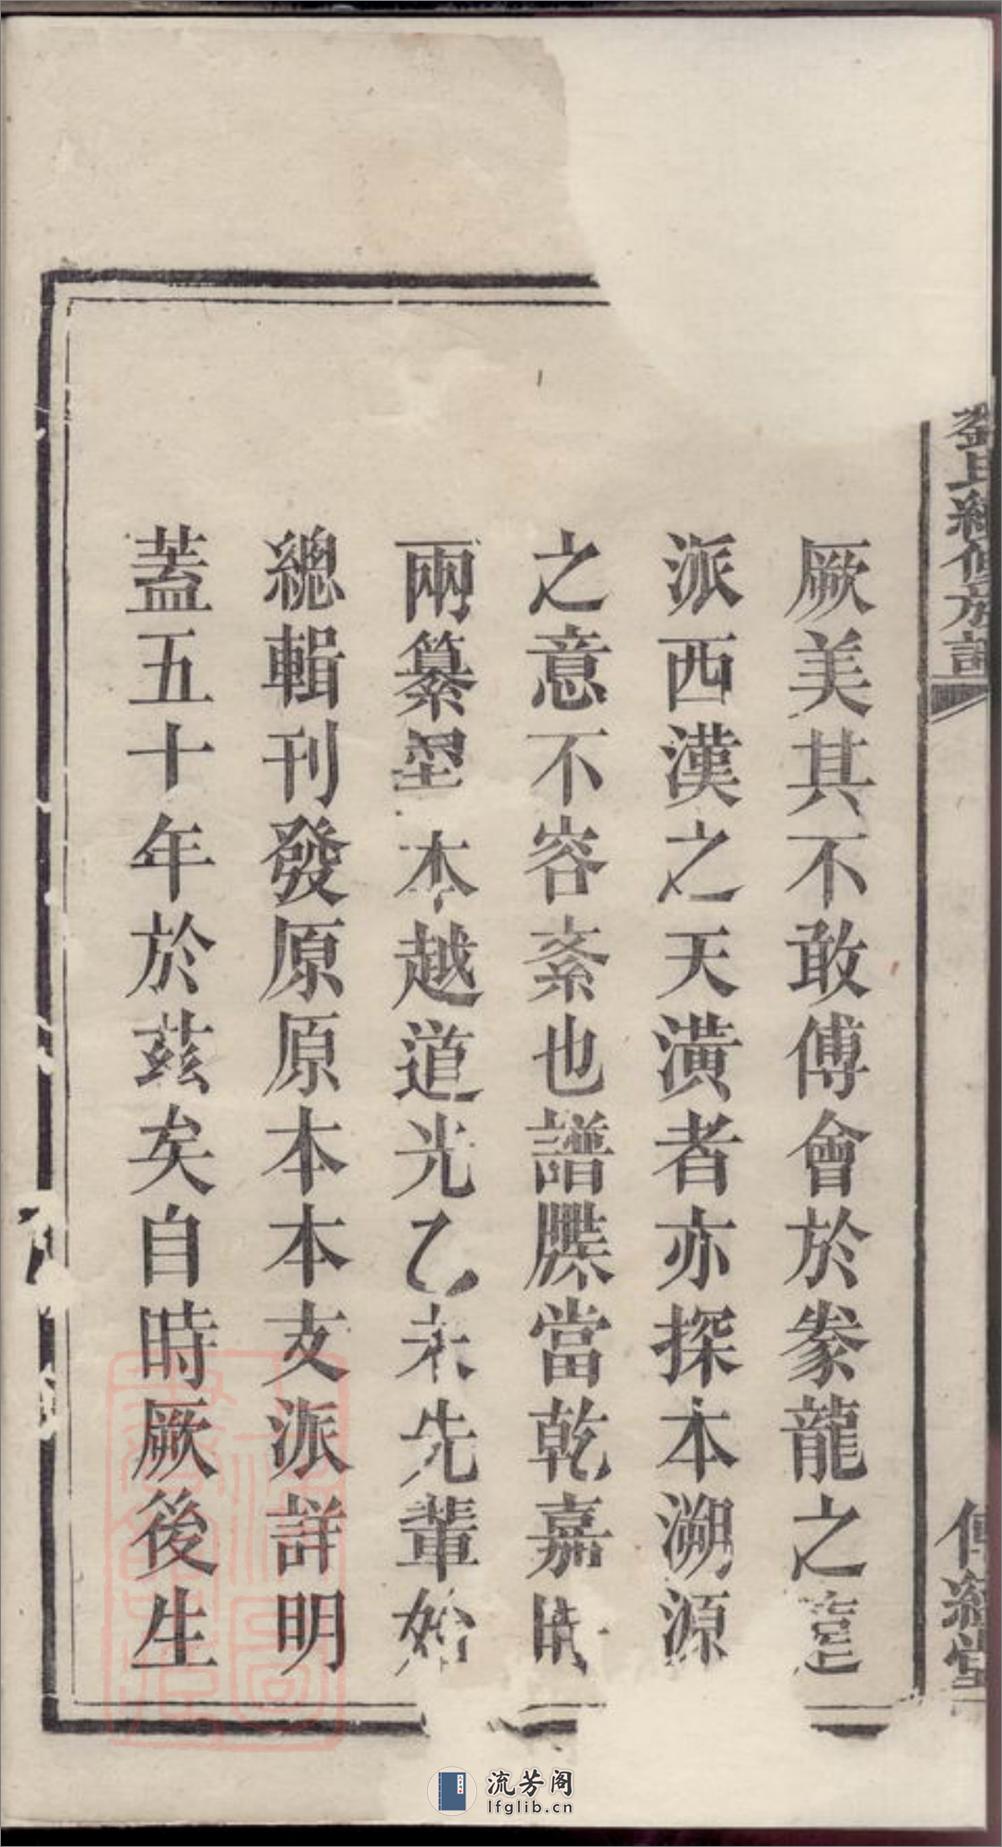 劉氏續修族譜
傳經堂
厥美其不敢傅會於豢龍之
派西漢之天潢者亦探本溯源
之意不容紊也譜牒當乾嘉時
兩纂 本越道光乙未先輩始
總輯刊發原原本本支派詳明
蓋五十年於茲矣自時厥後生
流芳阁
lfglib.cn